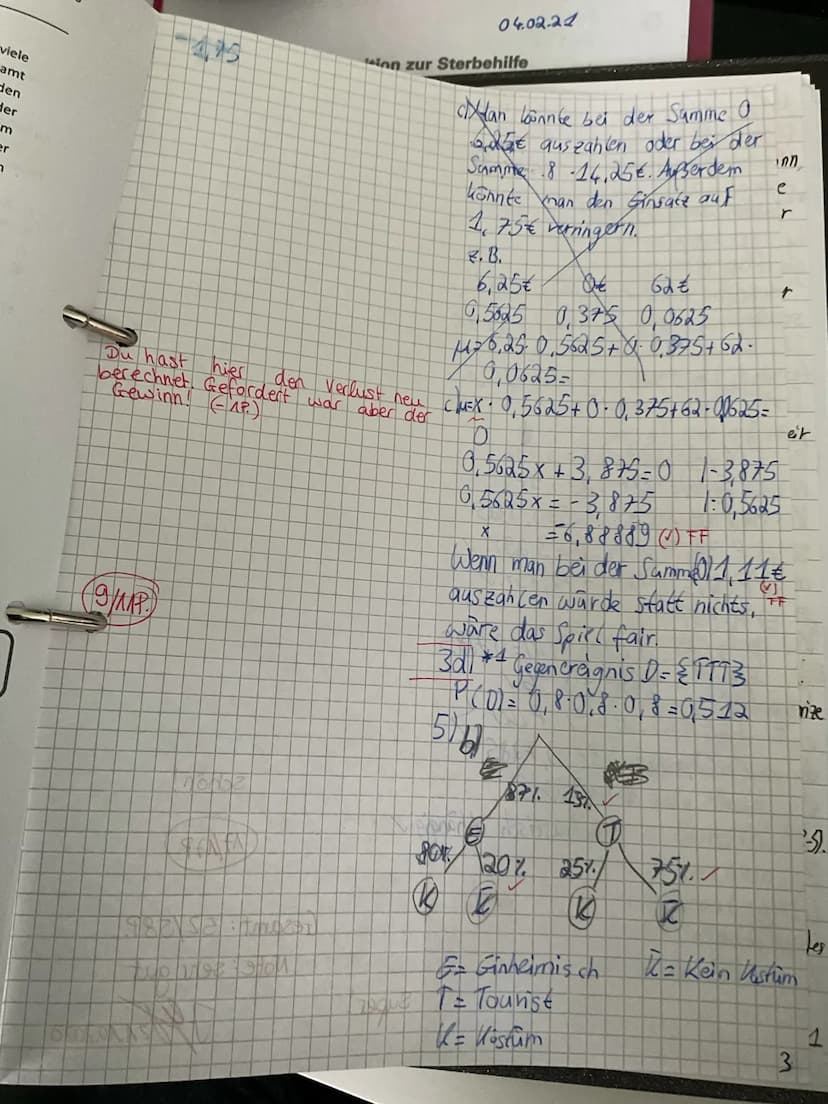 04.02.21
tion zur Sterbehilfe
viele
amt
den
der
m
er
n
-1,75
c) Man könnte bei der Summe 0
6,25€ auszahlen oder bei der
Summe 8 -14,25€. Außerdem
könnte man den Einsatz auf
1,75€ verringern.
z.B.
6,25€ 0€ 62€
0,5625 0,375 0,0625
μ=6,25·0,5625+0·0,375+62·
0,0625=
Du hast hier den Verlust neu
berechnet. Gefordert war aber der
Gewinn! (-1P.)
c) μ=x·0,5625+0·0,375+62·0,0625=
0
0,5625x+3,875=0 |-3,875
0,5625x=-3,875 |:0,5625
x =-6,88889 (✓) FF
Wenn man bei der Summe (0) 1,11€
(✓)
FF
auszahlen würde statt nichts,
wäre das Spiel fair.
9/11P.
3d) *1 Gegenereignis D={TTT}
P(D)=0,8·0,8·0,8=0,512
5) b)
87% 13% ✓
E T
80% 20% 25% 75% ✓
✓
K K̄ K K̄
E= Einheimisch K̄= Kein Kostüm
T= Tourist
K= Kostüm
3
inn
e
r
r
eit
rize
-5).
ter
1
schön!
17/17P.
Gesamt: 52/58P.
Note: sehr gut
Super!